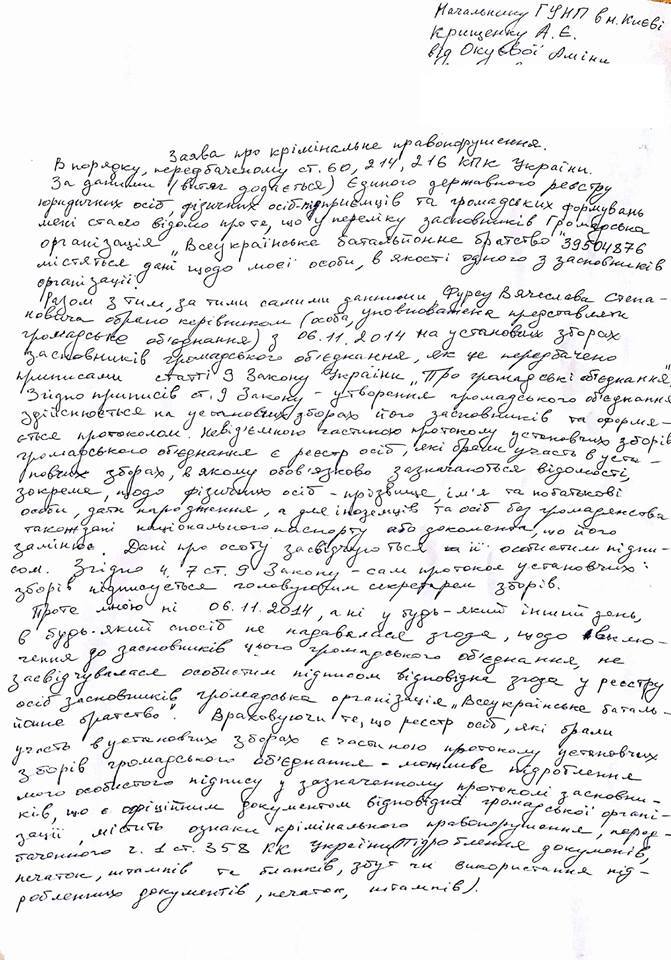 Начальнику ГУНП в м. Києві
Крищенку А.Є.
від Окуєвої Аміни
Заява про крімінальне правопорушення.
В порядку, передбаченому ст. 60, 214, 216 КПК України.
За даними (витяг додається) Єдиного державного реєстру
юридичних осіб, фізичних осіб-підприємців та громадських формувань
мені стало відомо про те, що у переліку засновників Громадська
організація "Всеукраїнське батальйонне братство" 39504876
містяться дані щодо моєї особи, в якості одного з засновників
організації.
Разом з тим, за тими самими данними Фурсу Вячеслава Степа-
новича обрано керівником (особа, уповноважена представляти
громадське об'єднання) з 06.11.2014 на установчих зборах
засновників громадського об'єднання, як це передбачено
приписами статті 9 Закону України "Про громадські об'єднання".
Згідно приписів ст. 9 Закону - утворення громадського об'єднання
здійснюється на установчих зборах його засновників та оформля-
ється протоколом. Невід'ємною частиною протоколу установчих зборів
громадського об'єднання є реєстр осіб, які брали участь в уста-
новчих зборах, в якому обов'язково зазначаються відомості,
зокрема, щодо фізичних осіб - прізвище, ім'я та по батькові
особи, дата народження, а для іноземців та осіб без громадянства
також дані національного паспорту або документа, що його
замінює. Дані про особу засвідчуються її особистим підпи-
сом. Згідно ч. 7 ст. 9 Закону - сам протокол установчих
зборів підписується головуючим секретарем зборів.
Проте мною ні 06.11.2014, а ні у будь-який інший день,
в будь-який спосіб не надавалася згода, щодо вклю-
чення до засновників цього громадського об'єднання, не
засвідчувалася особистим підписом відповідна згода у реєстру
осіб засновників громадська організація "Всеукраїнське баталь-
йонне братство". Враховуючи те, що реєстр осіб, які брали
участь в установчих зборах є частиною протоколу установчих
зборів громадського об'єднання - можливе підроблення
мого особистого підпису у зазначенному протоколі засновни-
ків, що є офіційним документом відповідної громадської органі-
зації, містить ознаки крімінального правопорушення, перед-
баченного ч. 1 ст. 358 КК України (Підроблення документів,
печаток, штампів та бланків, збут чи використання під-
роблених документів, печаток, штампів).